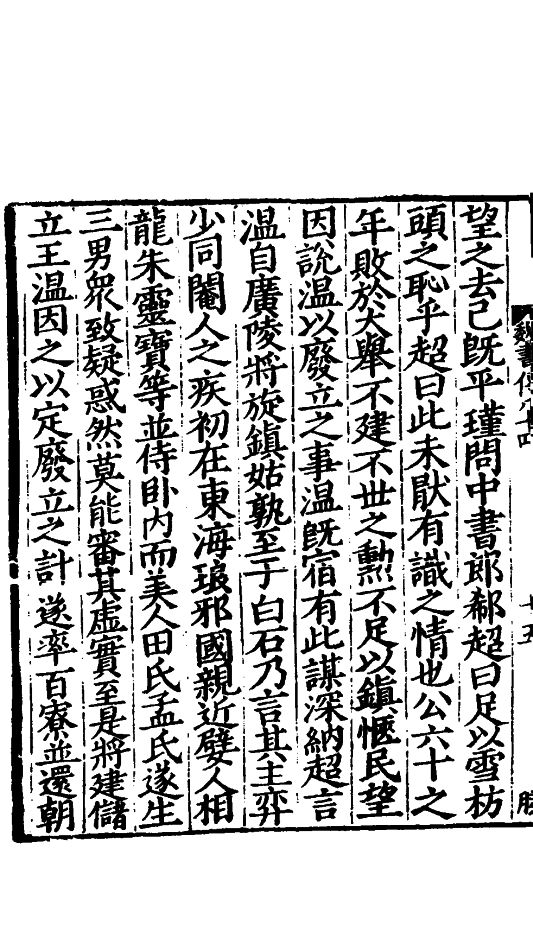 望之去己旣平瑾問中書郎郗超曰足以雪枋
頭之恥乎超曰此未厭有識之情也公六十之
年敗於大舉不建不世之勳不足以鎭愜民望
因說温以廢立之事温旣宿有此謀深納超言
温自廣陵將旋鎭姑孰至于白石乃言其主弈
少同閹人之疾初在東海琅邪國親近嬖人相
龍朱靈寶等並侍卧内而美人田氏孟氏遂生
三男衆致疑惑然莫能審其虛實至是將建儲
立王温因之以定廢立之計遂率百寮並還朝